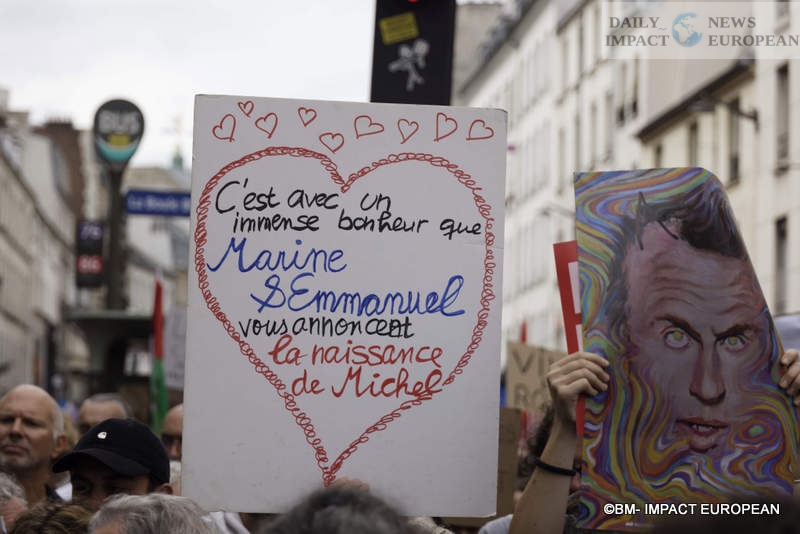 DAILY NEWS
IMPACT EUROPEAN
BUS
C'est avec un
immense bonheur que
Marine
& Emmanuel
vous annoncent
la naissance
de Michel
©BM- IMPACT EUROPEAN